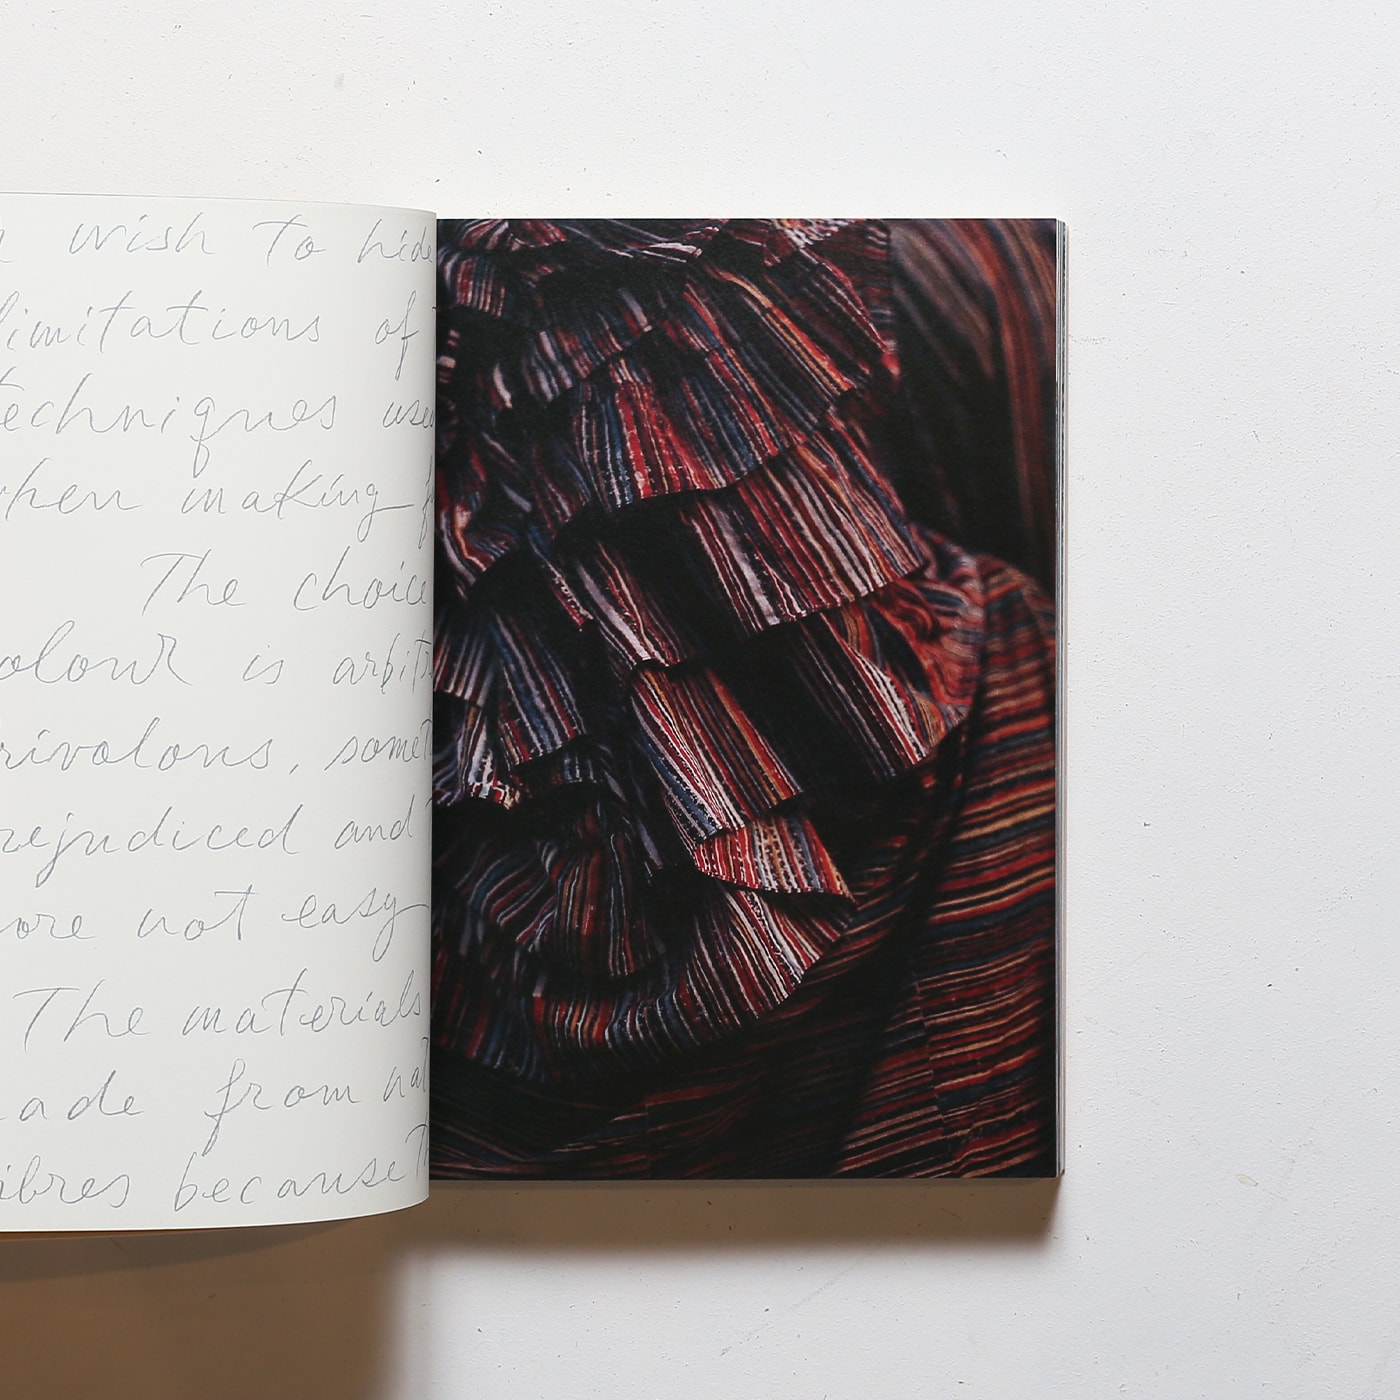 wish to hide
limitations of
techniques used
when making
The choice
colour is arbitr
frivolous, somet
prejudiced and
more not easy
The materials
made from nat
fibres because